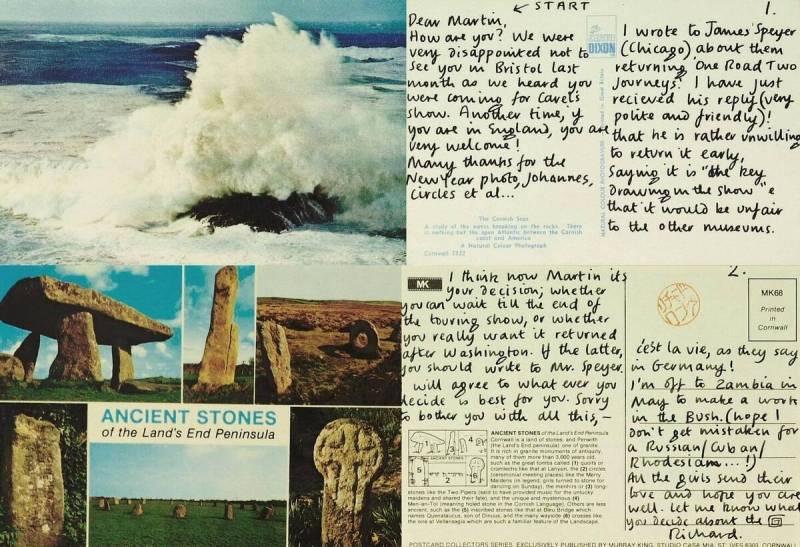 ← START
Dear Martin,
How are you? We were
very disappointed not to
see you in Bristol last
month as we heard you
were coming for Carel's
show. Another time, if
you are in England, you are
very welcome!
Many thanks for the
New Year photo, Johannes,
Circles et al...
The Cornish Seas
A study of the waves breaking on the rocks. There
is nothing but the open Atlantic between the Cornish
coast and America
A Natural Colour Photograph
Cornwall 1522
DIXON
NATURAL COLOUR PHOTOGRAPH
1.
I wrote to James Speyer
(Chicago) about them
returning 'One Road Two
Journeys'. I have just
recieved his reply (very
polite and friendly)!
that he is rather unwilling
to return it early,
saying it is "the key
drawing in the show" e
that it would be unfair
to the other museums.
ANCIENT STONES
of the Land's End Peninsula
MK
I think now Martin its
your decision; whether
you can wait till the end of
the touring show, or whether
you really want it returned
after Washington. If the latter,
you should write to Mr. Speyer.
I will agree to what ever you
decide is best for you. Sorry
to bother you with all this, –
ANCIENT STONES of the Land's End Peninsula
Cornwall is a land of stones, and Penwith
(the very westernmost part) one of granite.
It is rich in granite monuments of antiquity,
many of them more than 3,000 years old,
such as the great tombs called (1) quoits or
cromlechs like that at Lanyon, the (2) circles
(ceremonial meeting places) like the Merry
Maidens (in legend, girls turned to stone for
dancing on Sunday), the menhirs or (3) long-
stones like the Two Pipers (said to have provided music for the unlucky
maidens and shared their fate), and the unique and mysterious (4)
Men-an-Tol (meaning holed stone in the Cornish Language). Others are less
ancient, such as the (5) inscribed stones like that at Bleu Bridge which
names Quenataucus, son of Dinuus, and the many wayside (6) crosses like
the one at Vellansagia which are such a familiar feature of the Landscape.
2.
MK68
Printed
in
Cornwall
c'est la vie, as they say
in Germany!
I'm off to Zambia in
May to make a work
in the Bush. (hope I
don't get mistaken for
a Russian/Cuban/
Rhodesians...!)
All the girls send their
love and hope you are
well. Let me know what
you decide about the
Richard.
POSTCARD COLLECTORS SERIES. EXCLUSIVELY PUBLISHED BY MURRAY KING, STUDIO CASA MIA, ST. IVES 8303, CORNWALL